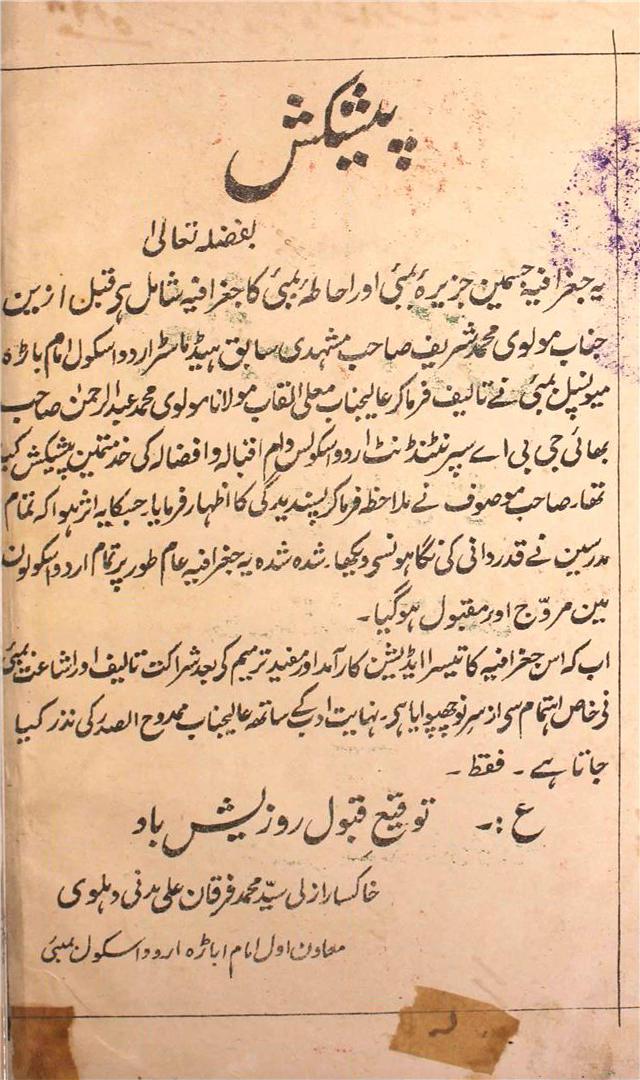 پیشکش
بفضلہ تعالیٰ
یہ جغرافیہ جسمین جزیرۂ بمبئی اور احاطۂ بمبئی کا جغرافیہ شامل ہی قبل ازین
جناب مولوی محمد شریف صاحب مشہدی سابق ہیڈ ماسٹر اردو اسکول امام باڑہ
میونسپل بمبئی نے تالیف فرما کر عالیجناب معلی القاب مولانا مولوی محمد عبدالرحمن صاحب
بھائی جی بی اے سپرنٹنڈنٹ اردو اسکولس دام اقبالہ و افضالہ کی خدمتمین پیشکش کیا
تھا۔ صاحب موصوف نے ملاحظہ فرما کر پسندیدگی کا اظہار فرمایا۔ جسکا یہ اثر ہوا کہ تمام
مدرسین نے قدردانی کی نگاہونسی دیکھا۔ شدہ شدہ یہ جغرافیہ عام طور پر تمام اردو اسکولون
مین مروّج اور مقبول ہوگیا۔
اب کہ اس جغرافیہ کا تیسرا ایڈیشن کارآمد اور مفید ترمیم کی بعد شراکت تالیف اور اشاعت بمبئی
نی خاص اہتمام سی از سرنو چھپوایا ہی۔ نہایت ادب کے ساتھ عالیجناب ممدوح الصدر کی نذر کیا
جاتا ہے۔ فقط۔
ع :۔ توقیع قبول روزیش باد
خاکسار ازلی سیّد محمد فرقان علی مدنی دہلوی
معاون اول امام اباڑہ اردو اسکول بمبئی